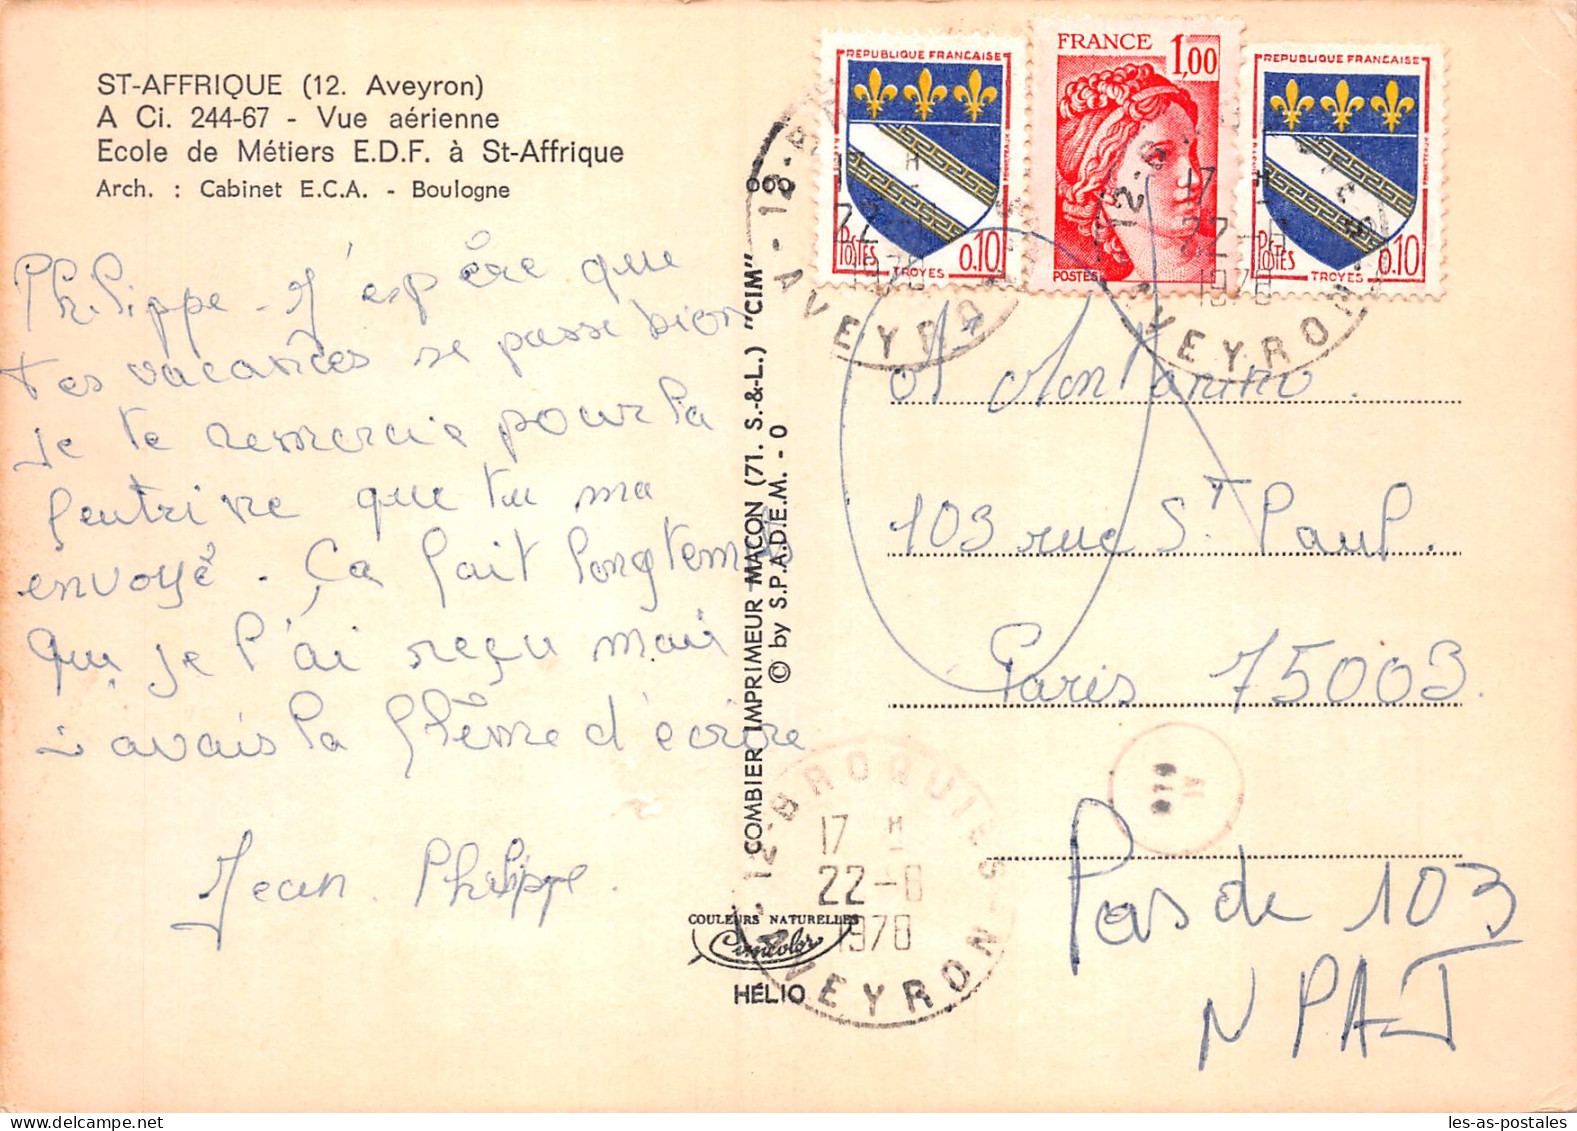 ST-AFFRIQUE (12. Aveyron)
A Ci. 244-67 - Vue aérienne
Ecole de Métiers E.D.F. à St-Affrique
Arch. : Cabinet E.C.A. - Boulogne
Philippe - J'espère que
tes vacances se passe bien
je te remercie pour la
que tu ma
envoyé. Ça fait longtemps
que je l'ai reçu mais
j'avais la flème d'écrire
Jean Philippe.
COMBIER IMPRIMEUR MACON (71. S.-&-L.) "CIM"
© by S.P.A.D.E.M. - 0
COULEURS NATURELLES
Cimcolor
HÉLIO
REPUBLIQUE FRANCAISE
POSTES
TROYES
0,10
FRANCE
1,00
POSTES
REPUBLIQUE FRANCAISE
POSTES
TROYES
0,10
12-B
17 H
22-8
1978
AVEYRON
12-B
17 H
22-8
1978
AVEYRON
103 rue St Paul.
Paris 75003.
12-BROQUIES
17 H
22-8
1978
AVEYRON
Pas de 103
NPAI
les-as-postales.com